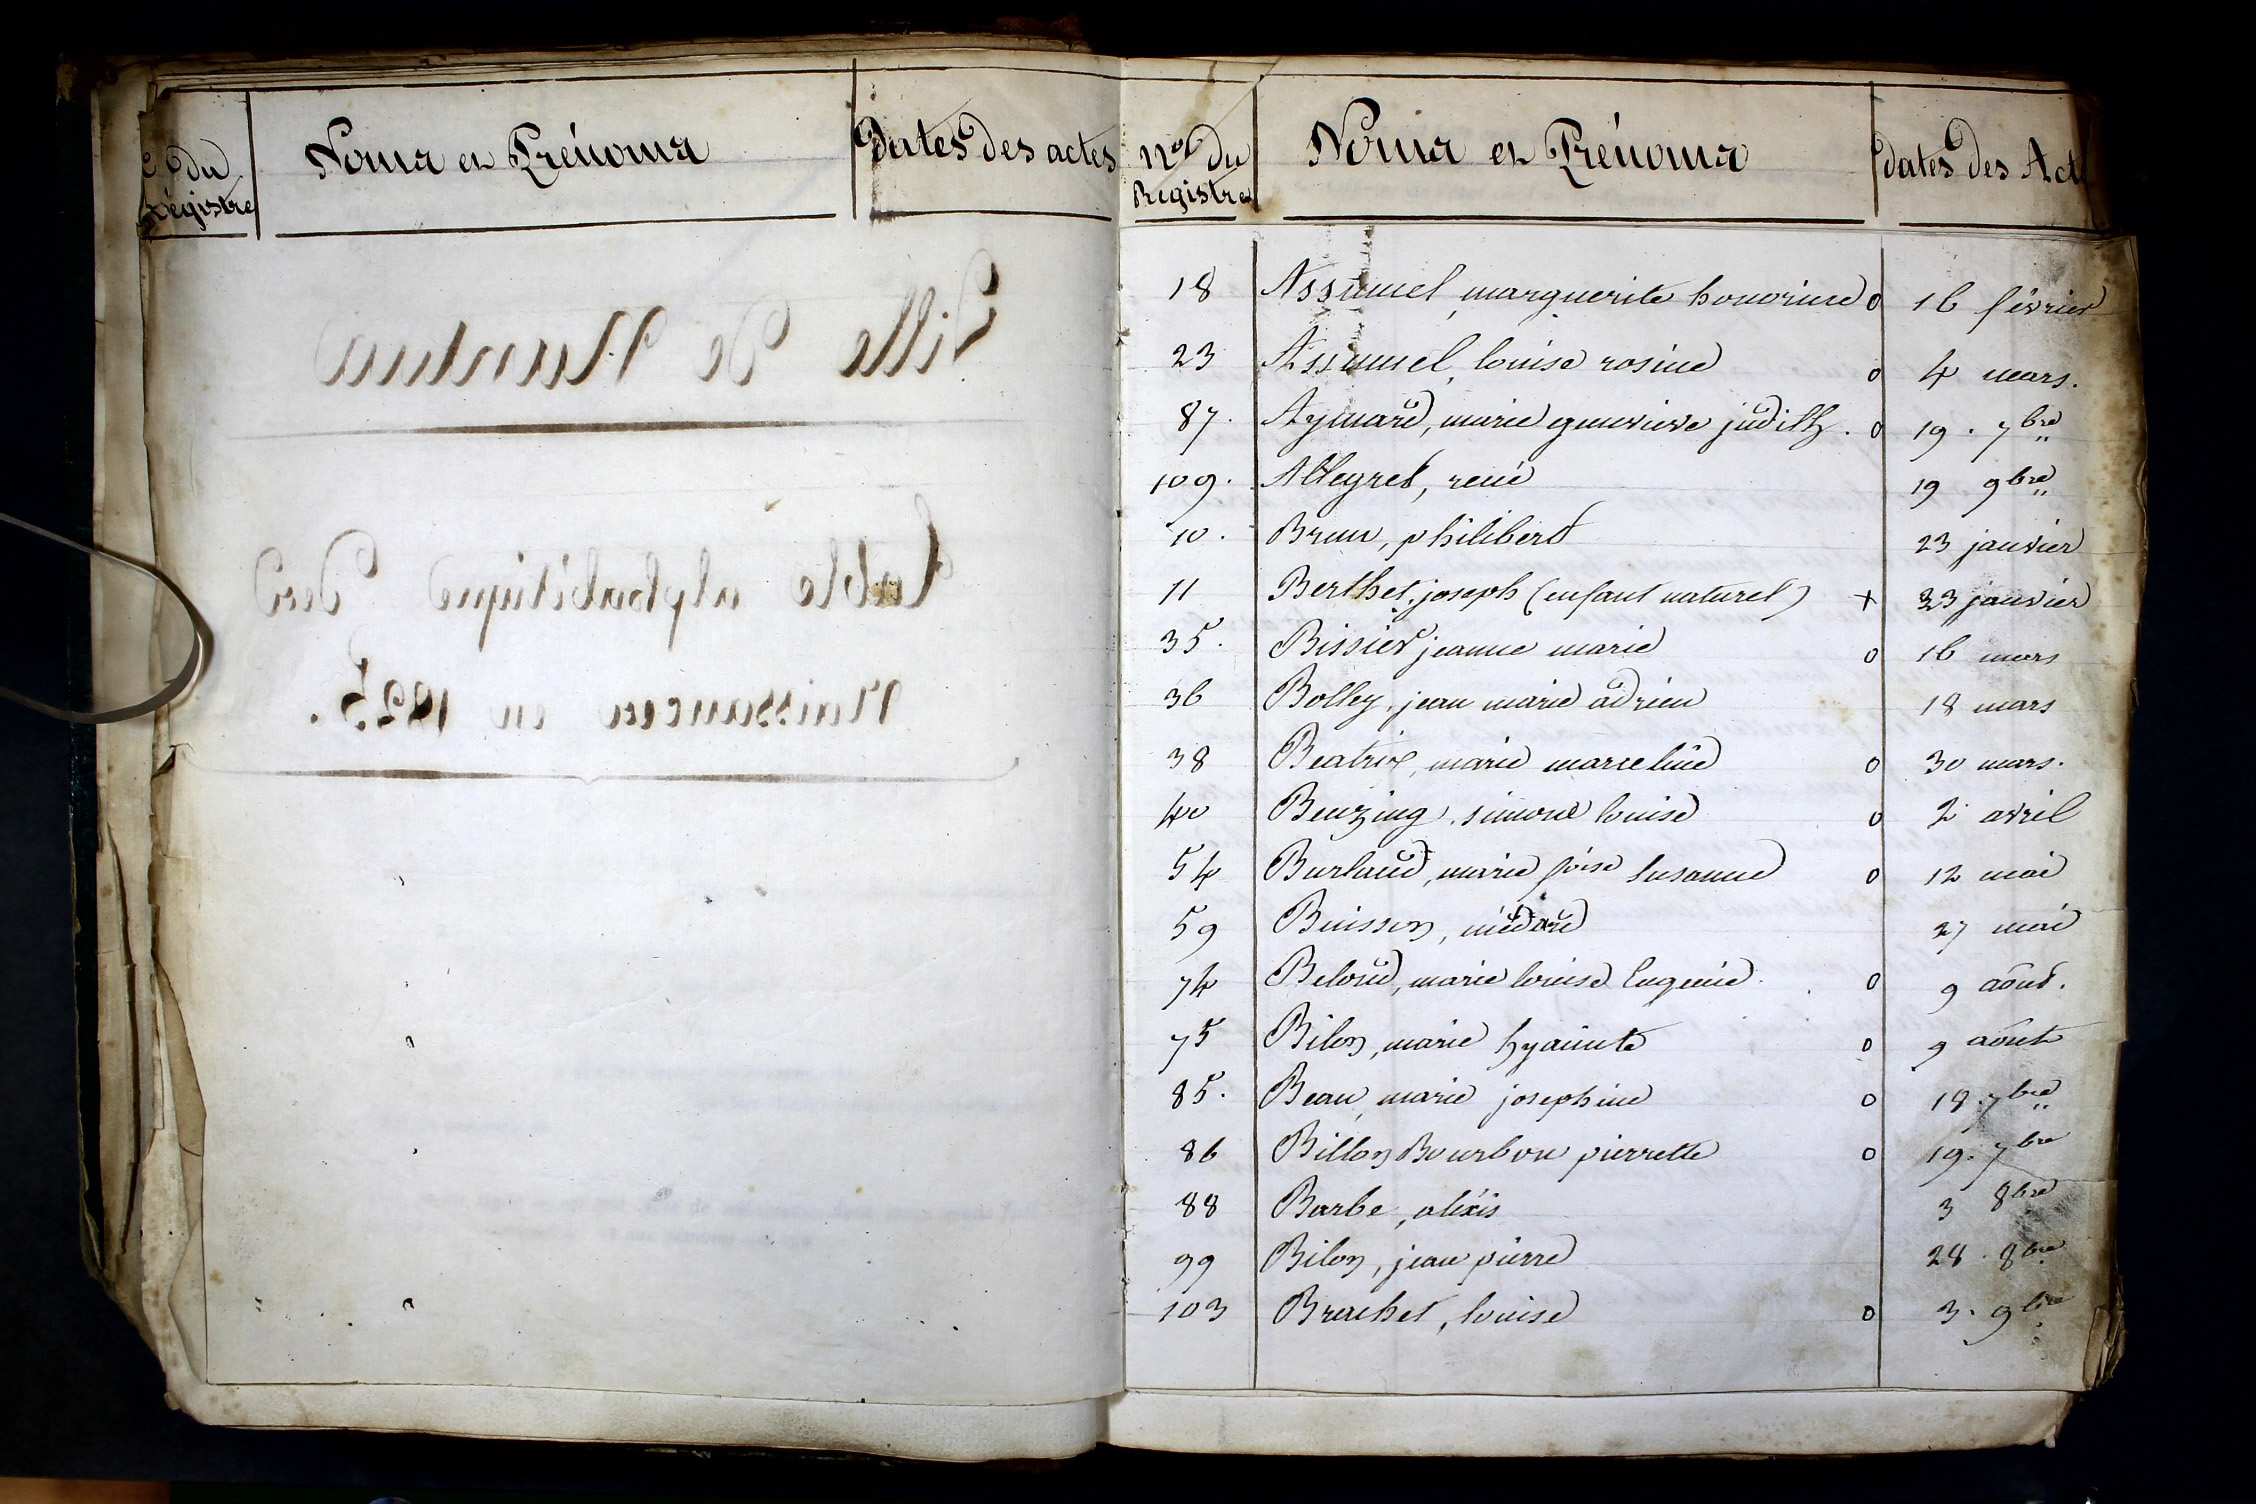 du
Registre
Noms et Prénoms
Dates des actes
Ville de Nantua
Table alphabétique des
Naissances en 1825.
nos du
Registre
Noms et Prénoms
dates des Act
18 Assumel, marguerite honorine o 16 février
23 Assumel, louise rosine o 4 mars.
87. Aymard, marie genevieve judith. o 19. 7bre
109. Allegret, rené 19 9bre
10. Brun, philibert 23 janvier
11 Berthet, joseph (enfant naturel) + 23 janvier
35. Bissier jeanne marie o 16 mars
36 Bolley, jean marie adrien 18 mars
38 Beatrix, marie marceline o 30 mars.
40 Benzing, simone louise o 2 avril
54 Burlaud, marie foise Susanne o 12 mai
59 Buisson, médard 27 mai
74 Beloud, marie louise Eugenie. o 9 août.
75 Bilon, marie hyacinte o 9 août
85. Beau, marie josephine o 18. 7bre
86 Billon Bourbon pierrette o 19. 7bre
88 Barbe, aléxis 3 8bre
99 Bilon, jean pierre 28. 8bre
103 Brachet, louise o 3. 9bre